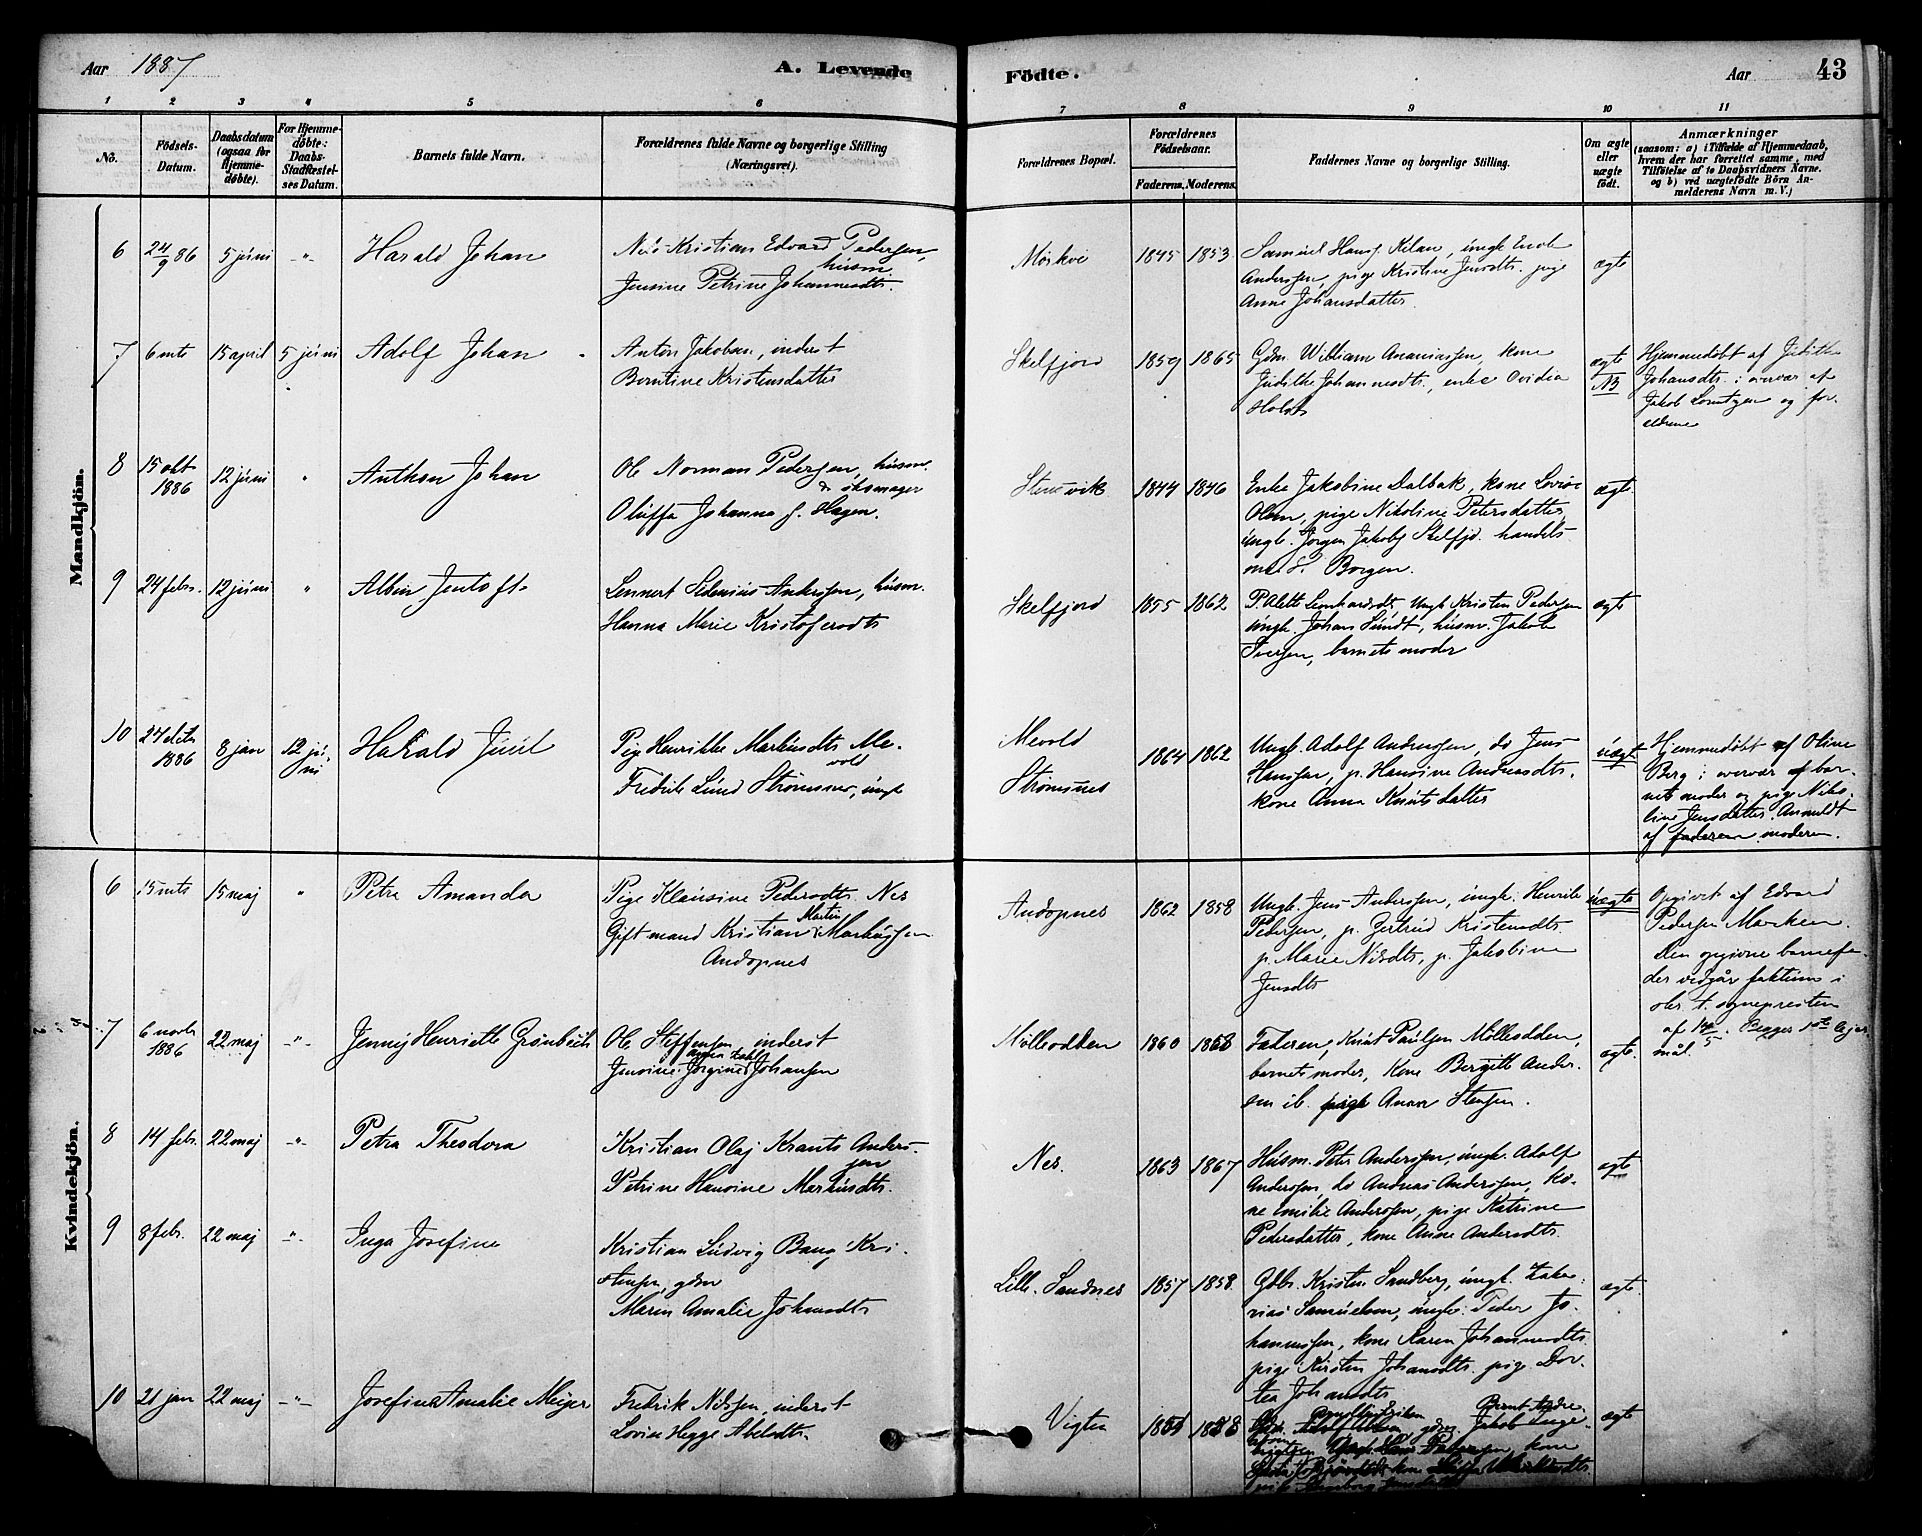 Aar 1887
A. Levende Födte.
Aar
43
1 2 3 4 5 6 7 8 9 10 11
No.
Födsels-Datum.
Daabsdatum (ogsaa for Hjemme-döbte).
For Hjemme-döbte: Daabs-Stadfæstel-ses Datum.
Barnets fulde Navn.
Forældrenes fulde Navne og borgerlige Stilling (Næringsvei).
Forældrenes Bopæl.
Forældrenes Födselsaar.
Faderens. Moderens.
Faddernes Navne og borgerlige Stilling.
Om ægte eller uægte födt.
Anmærkninger
(saasom: a) i Tilfælde af Hjemmedaab, hvem der har forrettet samme, med Tilföielse af to Daabsvidners Navne. og b) ved uægtefödte Börn An-melderens Navn m. V.)
Mandkjön.
6 24/9 86 5 juni -"- Harald Johan
Nils Kristian Edvard Pedersen, husm.
Jensine Petrine Johannesdtr.
1845 1853
Samuel Hansf. Kilan, ungk. Enok
Anderssen, pige Kristine Jensdtr. pige
Anne Johansdatter
ægte
7 6 mts 15 april 5 juni Adolf Johan
Anton Jakobsen, inderst
Berntine Kristensdatter
Skelfjord 1859 1865
Gdm. William Ananiassen, kone
Judithe Johannesdtr., enke Ovidia
Holst
ægte
NB
Hjemmedöbt af Judithe
Johansdtr. i overvær af
Jakob Lorntzen og for-
eldrene
8 15 okt 1886 12 juni " Anthon Johan
Ole Norman Pedersen, husm.
& öksmager
Oluffa Johanna f. Hagen.
Stensvik 1844 1846
Enke Jakobine Dalbak, kone Lovise
Olsen, pige Nikoline Petersdatter,
ungk. Jörgen Jakobs. Skelfjd. handels-
Borgen.
ægte
9 24 febr. 12 juni " Albin Jentoft
Lennert Sidenius Anderssen, husm.
Hanna Marie Kristofersdtr
Skelfjord 1855 1862
P. Alette Lenhardsdtr, Ungk Kristen Pedersen
ungk. Johan Sundt, husm. Jakob
Iversen, barnets moder
ægte
10 24 1886 8 jan 12 juni Harald Juul
Pige Henrikke Markusdtr Me-
vold
Fredrik Lund Strömsnes, ungk
Mevold
Strömsnes
1864 1862
Ungk. Adolf Anderssen, do Jens
Hanssen, p. Hansine Andreasdtr.
kone Anna Knutsdatter
uægte
Hjemmedöbt af Oline
Berg i overvær af bar-
nets moder og pige Niko-
line Jensdatter. Anmeldt
af faderen moderen.
Kvindekjön.
6 15 mts 15 maj " Petra Amanda
Pige Klausine Pedersdtr. Nes
Gift mand Kristian Martin Markussen
Andopnes
Andopnes 1862 1858
Ungk. Jens Anderssen, ungk. Henrik
Pedersen, p. Gertrud Kristensdtr
p. Marie Nilsdtr, p. Jakobine
Jensdtr
uægte
Opgivet af Edvard
Pedersen
Den opgivne barnefa-
der vedgår faktum i
af 14/5. Begges 1ste lejer
mål.
7 6 novb 1886 22 maj -"- Jenny Henriette Grönbech
Ole Steffensen, inderst
Jensine Jörgine Johansen
Mölleodden 1860 1858
Faderen, Knut Paulsen Mölleodden,
barnets moder, Kone Bergitte Ander-
sen ib. pige Anna Stensen.
ægte.
8 14 febr. 22 maj -"- Petra Theodora
Kristian Olaj Krants Anders-
sen
Petrine Hansine Markusdtr.
Nes. 1863 1867
Husm. Peter Anderssen, ungk. Adolf
Anderssen do Andreas Anderssen, ko-
ne Emilie Anderssen, pige Katrine
Pedersdatter, kone Anne Andersdtr.
ægte
9 8 febr. 22 maj -"- Inga Josefine
Kristian Ludvig Bang Kri-
stensen, gdm
Maren Amalie Johansdtr
Lille Sandnes 1857 1858
Gdbr. Kristen Sandberg, ungk. Zaka-
rias Samuelsen, ungk. Peder Jo-
hannessen, kone Karen Johannesdtr
pige Kirsten Johansdtr. pige Dor-
tea Johansdtr
ægte.
10 21 jan 22 maj -"- Josefine Amalie Meijer
Fredrik Nilssen, inderst
Lovise Hegge Abelsdtr.
Vigten 1858
Jakob Inge-
kone
ægte